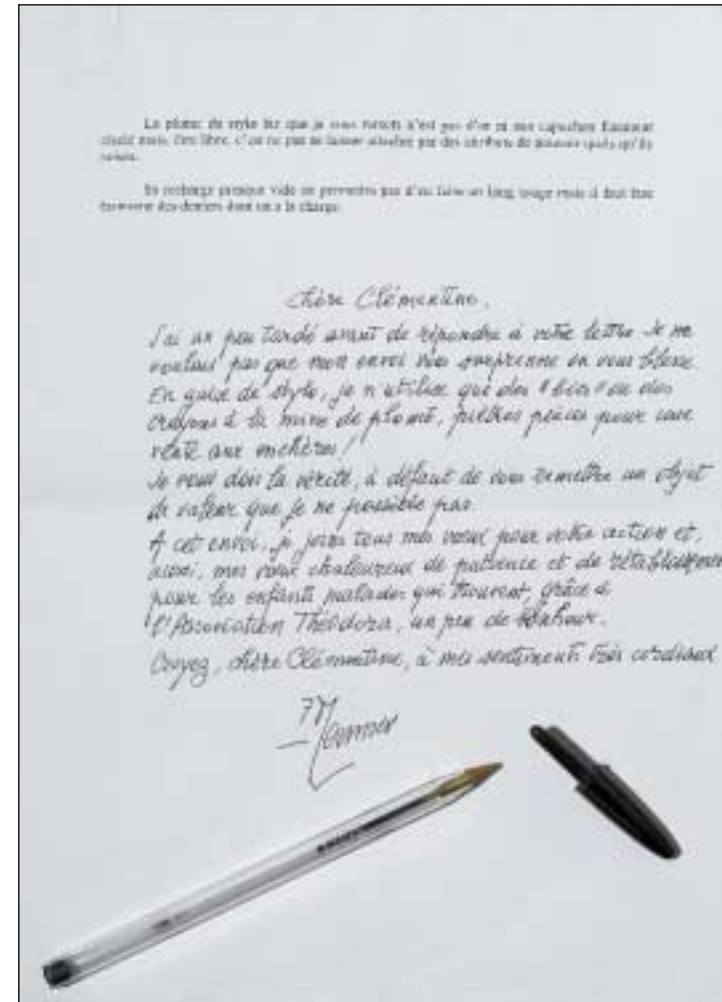 La plume de style bic que je vous remets n'est pas d'or ni son capuchon
mais, être libre, c'est ne pas se laisser par des attributs de pouvoir quels qu'ils
soient.
Sa recharge presque vide ne permettra pas d'en faire un long usage mais il faut être
économe des deniers dont on a la charge.
Chère Clémentine,
J'ai un peu tardé avant de répondre à votre lettre. Je ne
voulais pas que mon envoi vous surprenne ou vous blesse.
En guise de stylo, je n'utilise que des "bics" ou des
crayons à la mine de plomb, piètres pièces pour une
vente aux enchères !
Je vous dois la vérité, à défaut de vous remettre un objet
de valeur que je ne possède pas.
A cet envoi, je joins tous mes vœux pour votre action et,
aussi, mes vœux chaleureux de patience et de rétablissement
pour les enfants malades qui trouvent, grâce à
l'Association Théodora, un peu de bonheur.
Croyez, chère Clémentine, à mes sentiments très cordiaux